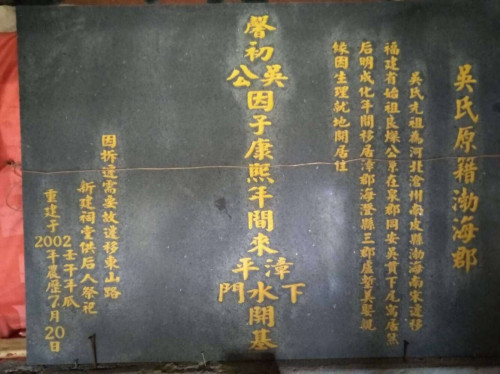 吳氏原籍渤海郡
吳氏先祖為河北滄州南皮縣渤海南家遷移
福建省始祖良燦公原在泉郡同安吳貫下尾寓居
后明成化年間移居漳郡海澄縣三郡盧美親
緣因生理就地開居住
聲初吳公因子康熙年間來漳平下水門開基
因拆遷需要故遷移東山路
新建祠堂供后人祭祀
壬午年瓜
重建于2002年農歷7月20日